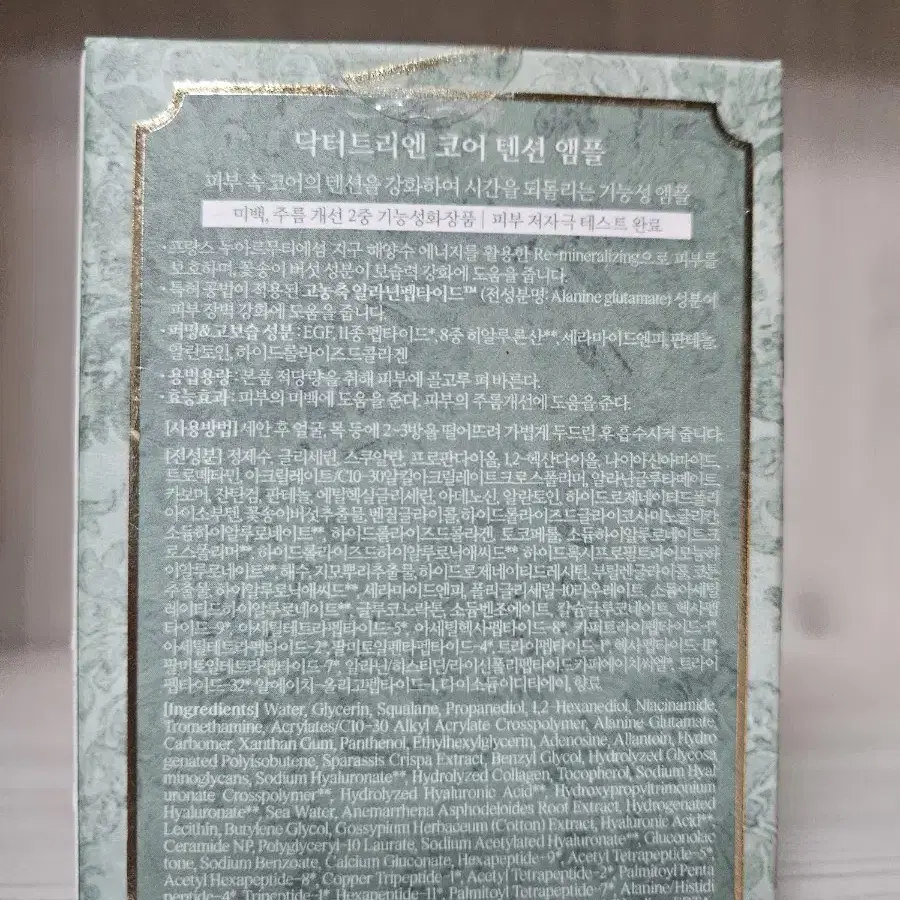 닥터드리엔 코어 텐션 앰플
피부 속 코어의 텐션을 강화하여 시간을 되돌리는 기능성 앰플
미백, 주름 개선 2중 기능성화장품 | 피부 저자극 테스트 완료
· 프랑스 누아르무티에섬 지구 해양수 에너지를 활용한 Re-mineralizing으로 피부를
보호하며, 꽃송이 버섯 성분이 보습력 강화에 도움을 줍니다.
· 특허 공법이 적용된 고농축 알라닌펩타이드™ (전성분명: Alanine glutamate) 성분이
피부 장벽 강화에 도움을 줍니다.
· 퍼밍&고보습 성분 : EGF, 11종 펩타이드*, 8중 히알루론산**, 세라마이드엔피, 판테놀,
알란토인, 하이드롤라이즈드콜라겐
· 용법용량 : 본품 적당량을 취해 피부에 골고루 펴 바른다.
· 효능효과 : 피부의 미백에 도움을 준다. 피부의 주름개선에 도움을 준다.
[사용방법] 세안 후 얼굴, 목 등에 2~3방울 떨어뜨려 가볍게 두드린 후 흡수시켜 줍니다.
[전성분] 정제수, 글리세린, 스쿠알란, 프로판다이올, 1,2-헥산다이올, 나이아신아마이드,
트로메타민, 아크릴레이트/C10-30알킬아크릴레이트크로스폴리머, 알라닌글루타메이트,
카보머, 잔탄검, 판테놀, 에틸헥실글리세린, 아데노신, 알란토인, 하이드로제네이티드폴리
아이소부텐, 꽃송이버섯추출물, 벤질글라이콜, 하이드롤라이즈드글라이코사미노글리칸,
소듐하이알루로네이트**, 하이드롤라이즈드콜라겐, 토코페롤, 소듐하이알루로네이트크
로스폴리머**, 하이드롤라이즈드하이알루로닉애씨드**, 하이드록시프로필트라이모늄하
이알루로네이트**, 해수, 지모뿌리추출물, 하이드로제네이티드레시틴, 부틸렌글라이콜, 코튼
추출물, 하이알루로닉애씨드**, 세라마이드엔피, 폴리글리세릴-10라우레이트, 소듐아세틸
레이티드하이알루로네이트**, 글루코노락톤, 소듐벤조에이트, 칼슘글루코네이트, 헥사펩
타이드-9*, 아세틸테트라펩타이드-5*, 아세틸헥사펩타이드-8*, 카퍼트라이펩타이드-1*,
아세틸테트라펩타이드-2*, 팔미토일펜타펩타이드-4*, 트라이펩타이드-1*, 헥사펩타이드-11*,
팔미토일테트라펩타이드-7*, 알라닌/히스티딘/라이신폴리펩타이드카퍼에이치씨엘*, 트라이
펩타이드-32*, 알에이치-올리고펩타이드-1, 다이소듐이디티에이, 향료
[Ingredients] Water, Glycerin, Squalane, Propanediol, 1,2-Hexanediol, Niacinamide,
Tromethamine, Acrylates/C10-30 Alkyl Acrylate Crosspolymer, Alanine Glutamate,
Carbomer, Xanthan Gum, Panthenol, Ethylhexylglycerin, Adenosine, Allantoin, Hydro
genated Polyisobutene, Sparassis Crispa Extract, Benzyl Glycol, Hydrolyzed Glycosa
minoglycans, Sodium Hyaluronate**, Hydrolyzed Collagen, Tocopherol, Sodium Hyal
uronate Crosspolymer**, Hydrolyzed Hyaluronic Acid**, Hydroxypropyltrimonium
Hyaluronate**, Sea Water, Anemarrhena Asphodeloides Root Extract, Hydrogenated
Lecithin, Butylene Glycol, Gossypium Herbaceum (Cotton) Extract, Hyaluronic Acid**,
Ceramide NP, Polyglyceryl-10 Laurate, Sodium Acetylated Hyaluronate**, Gluconolac
tone, Sodium Benzoate, Calcium Gluconate, Hexapeptide-9*, Acetyl Tetrapeptide-5*,
Acetyl Hexapeptide-8*, Copper Tripeptide-1*, Acetyl Tetrapeptide-2*, Palmitoyl Penta
peptide-4*, Tripeptide-1*, Hexapeptide-11*, Palmitoyl Tetrapeptide-7*, Alanine/Histidi